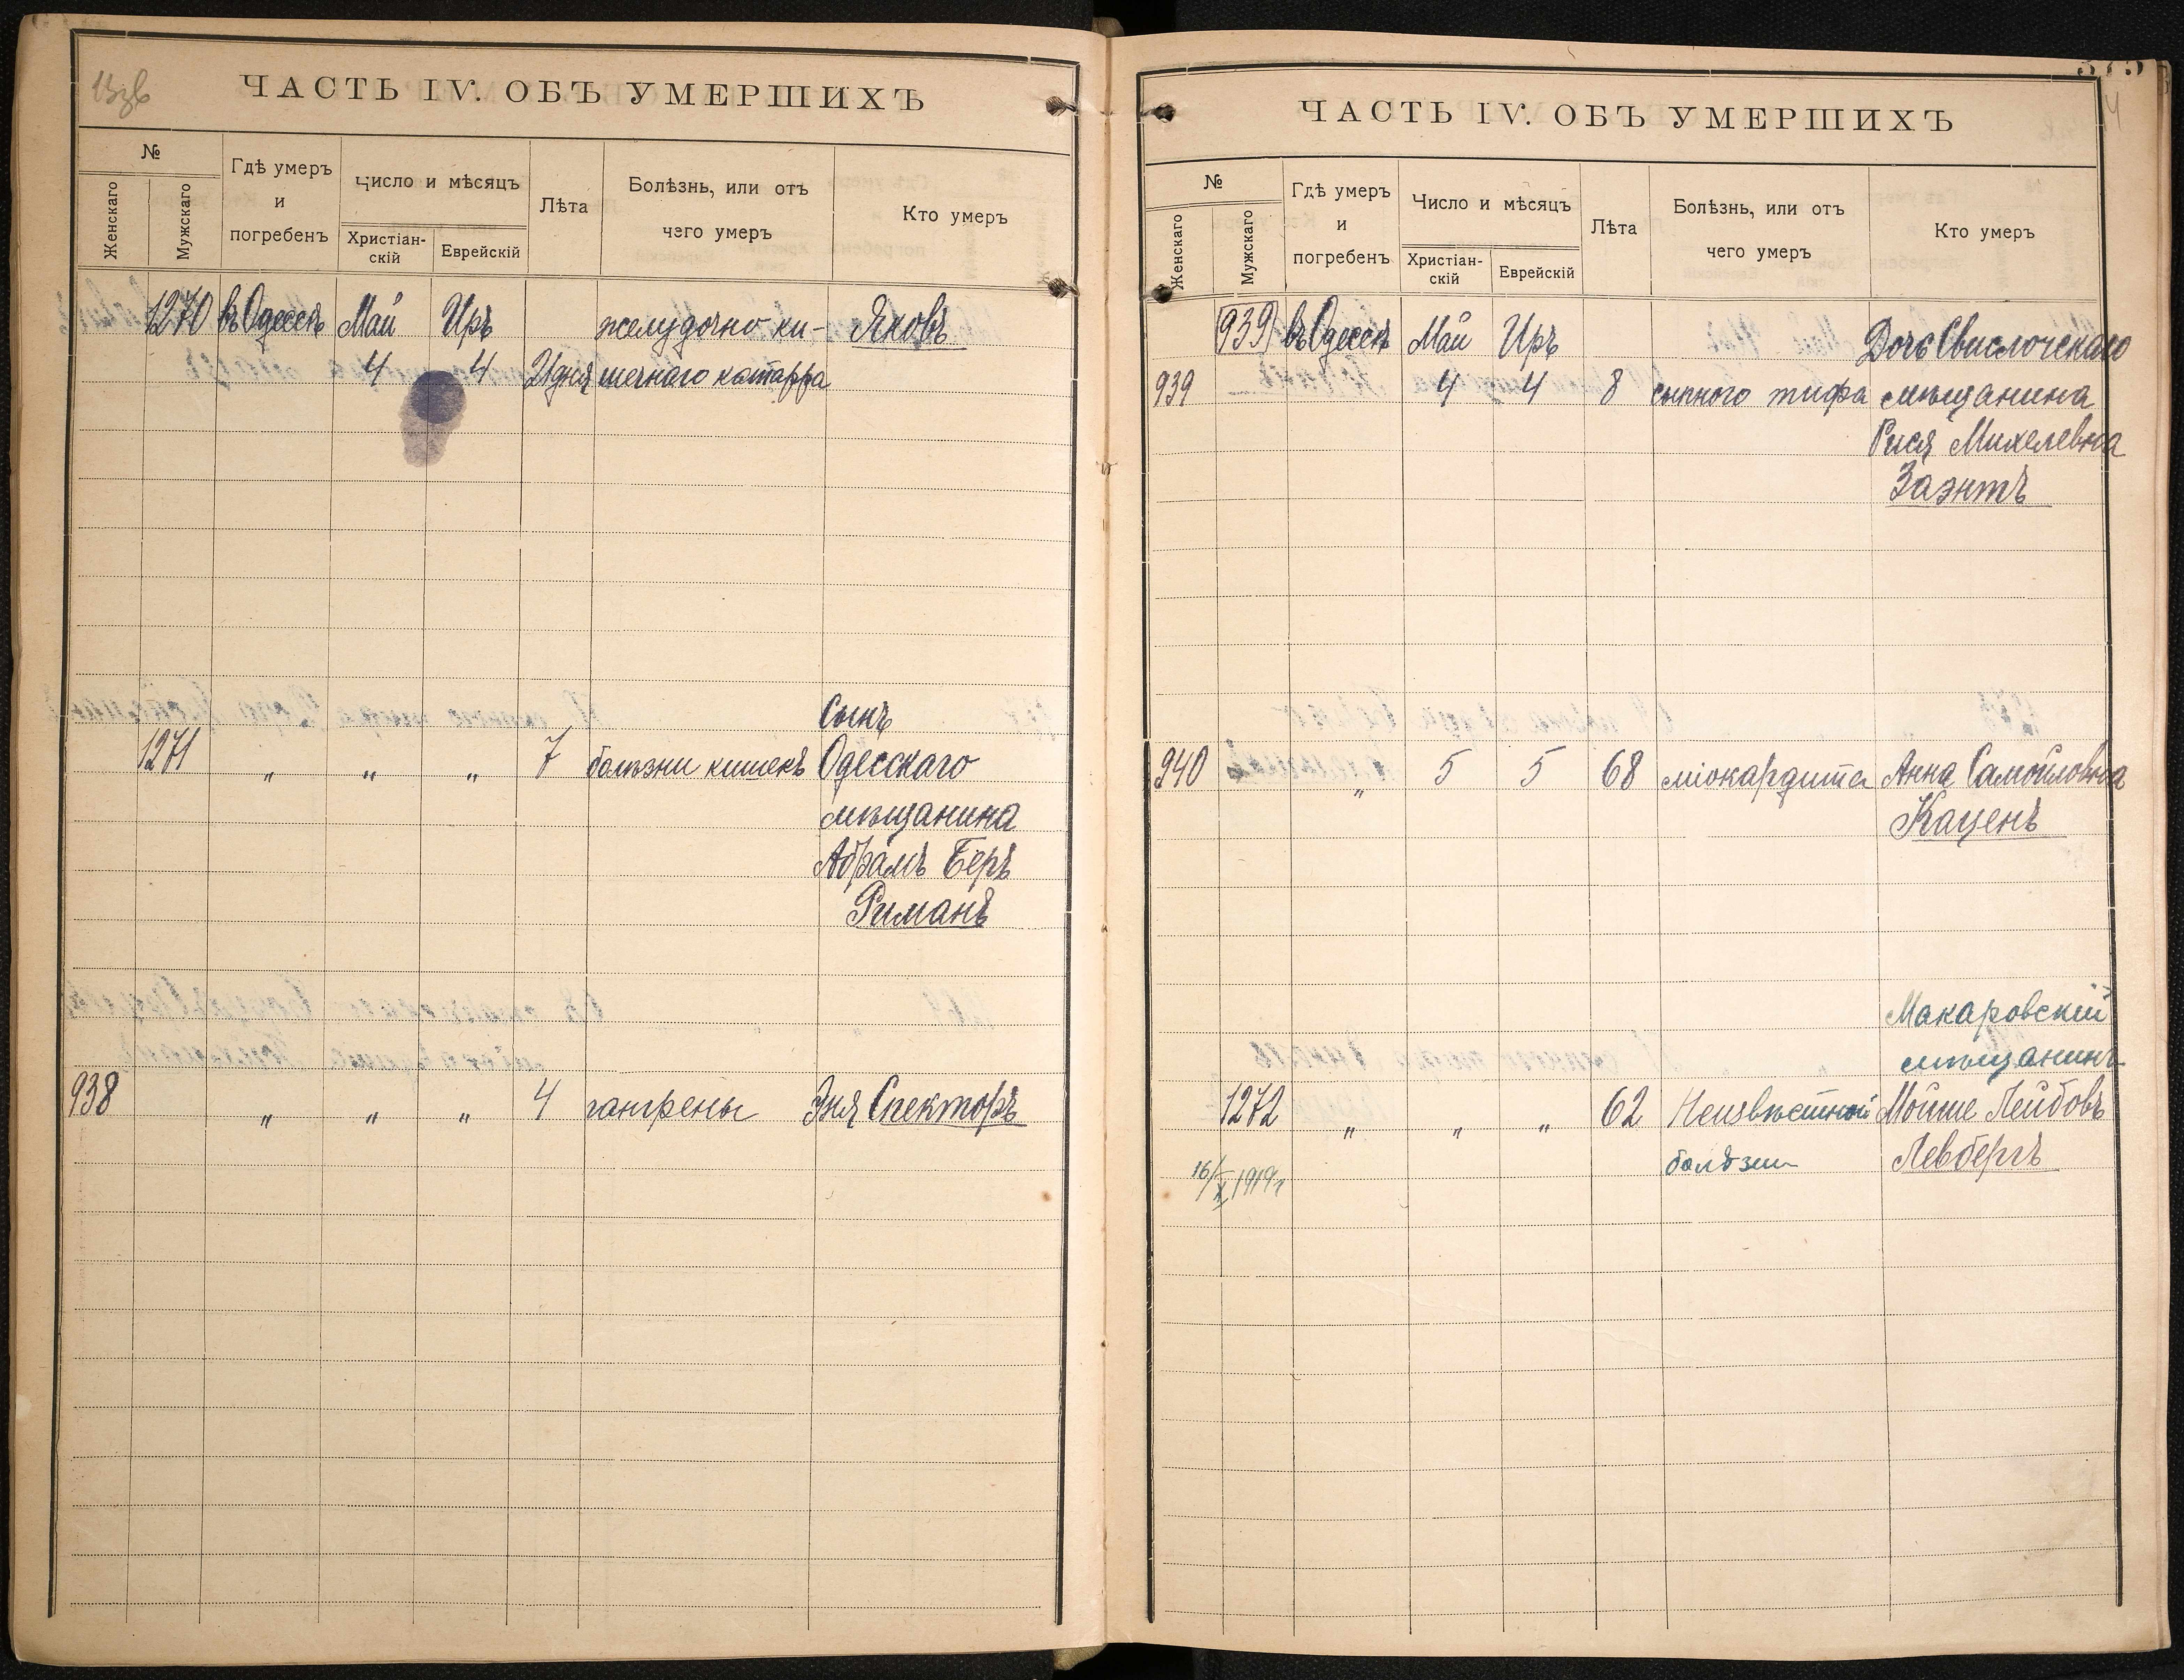 ЧАСТЬ IV. ОБЪ УМЕРШИХЪ
№
Женскаго
Мужскаго
Гдѣ умеръ
и
погребенъ
Число и мѣсяцъ
Христіан-
скій
Еврейскій
Лѣта
Болѣзнь, или отъ
чего умеръ
Кто умеръ
1270 въ Одессѣ Май Иръ желудочно-ки- Яковъ
4 4 21 дня шечнаго катарра
Сынъ
1271 „ „ „ 7 болѣзни кишекъ Одесскаго
мѣщанина
Абрамъ Беръ
Риманъ
938 „ „ „ 4 гангрены Эня Спекторъ
ЧАСТЬ IV. ОБЪ УМЕРШИХЪ
№
Женскаго
Мужскаго
Гдѣ умеръ
и
погребенъ
Число и мѣсяцъ
Христіан-
скій
Еврейскій
Лѣта
Болѣзнь, или отъ
чего умеръ
Кто умеръ
939 въ Одессѣ Май Иръ Дочь Свислочскаго
939 4 4 8 сыпного тифа мѣщанина
Рися Михелевна
Заэнтъ
940 „ 5 5 68 міокардита Анна Самойловна
Каценъ
Макаровскій
мѣщанинъ
1272 „ „ „ 62 Неизвѣстной Мойше Лейбовъ
болѣзни Левбергъ
16/X 1919 г